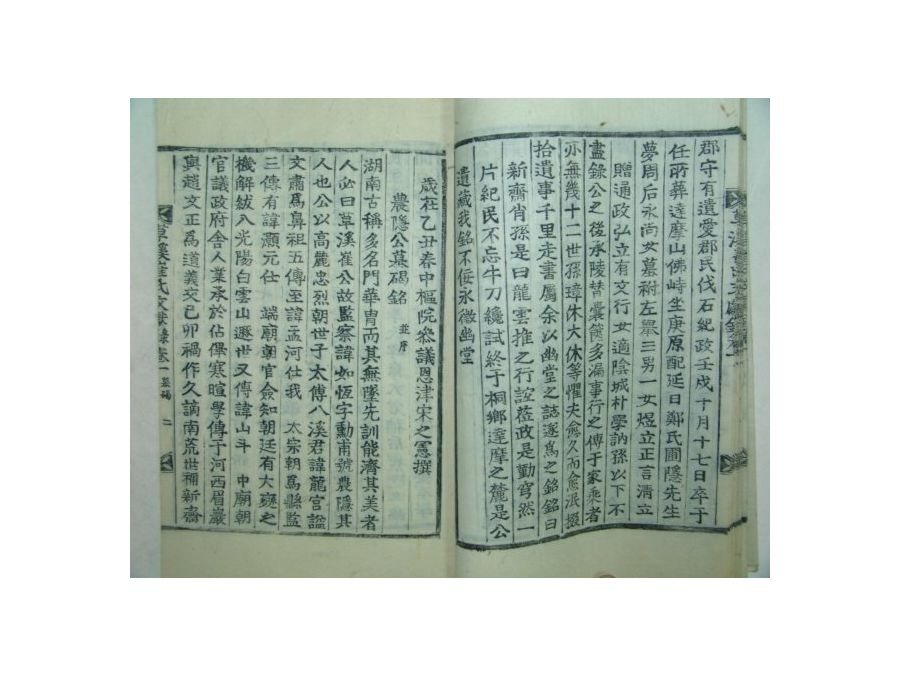 郡守有遺愛郡民伐石紀政壬戌十月十七日卒于
任所葬達摩山佛峙坐庚原配延日鄭氏圃隱先生
夢周后永尚女墓祔左擧三男一女煜立正言淸立
贈通政弘立有文行女適陰城朴學訥孫以下不
盡錄公之後承陵替囊篋多漏事行之傳于家乘者
亦無幾十二世孫璋休大休等懼夫愈久而愈泯掇
拾遺事千里走書屬余以幽堂之誌遂爲之銘銘曰
新齋肖孫是曰龍雲推之行誼莅政是勤穹然一
片紀民不忘牛刀纔試終于桐鄕達摩之麓是公
遺藏我銘不佞永徵幽堂
歲在乙丑春中樞院參議恩津宋之憲撰
農隱公墓碣銘 並序
湖南古稱多名門華冑而其無墜先訓能濟其美者
人必曰草溪崔公故監察諱如恆字勳甫號農隱其
人也公以高麗忠烈朝世子太傅八溪君諱龍宮諡
文肅爲鼻祖五傳至諱孟河仕我 太宗朝爲縣監
三傳有諱灝元仕 端廟朝官僉知朝廷有大難之
機解紱入光陽白雲山遯世又傳諱山斗 中廟朝
官議政府舍人業承於佔俾寒暄學傳于河西眉巖
與趙文正爲道義交己卯禍作久謫南荒世稱新齋
草溪崔氏文獻錄 卷一 墓碣 二